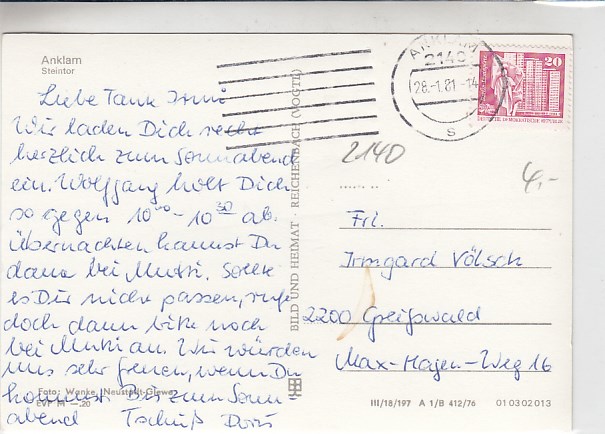 Anklam
Steintor
Liebe Tante Irmi
Wir laden Dich recht
herzlich zum Sonnabend
ein. Wolfgang holt Dich
so gegen 10⁰⁰ - 10³⁰ ab.
Übernachten kannst Du
dann bei Mutti. Sollte
es Dir nicht passen, rufe
doch dann bitte noch
bei Mutti an. Wir würden
uns sehr freuen, wenn Du
kommst. Bis zum Sonn-
abend Tschüß Doris
Foto: Wanke, Neustadt-Glewe
EVP M -.20
BILD UND HEIMAT · REICHENBACH (VOGTL)
ANKLAM
2140
28.-1.81.-14
s
20
DEUTSCHE DEMOKRATISCHE REPUBLIK
2140
4,-
Frl.
Irmgard Völsch
2200 Greifswald
Max-Hagen-Weg 16
III/18/197 A 1/B 412/76 01 03 02 013